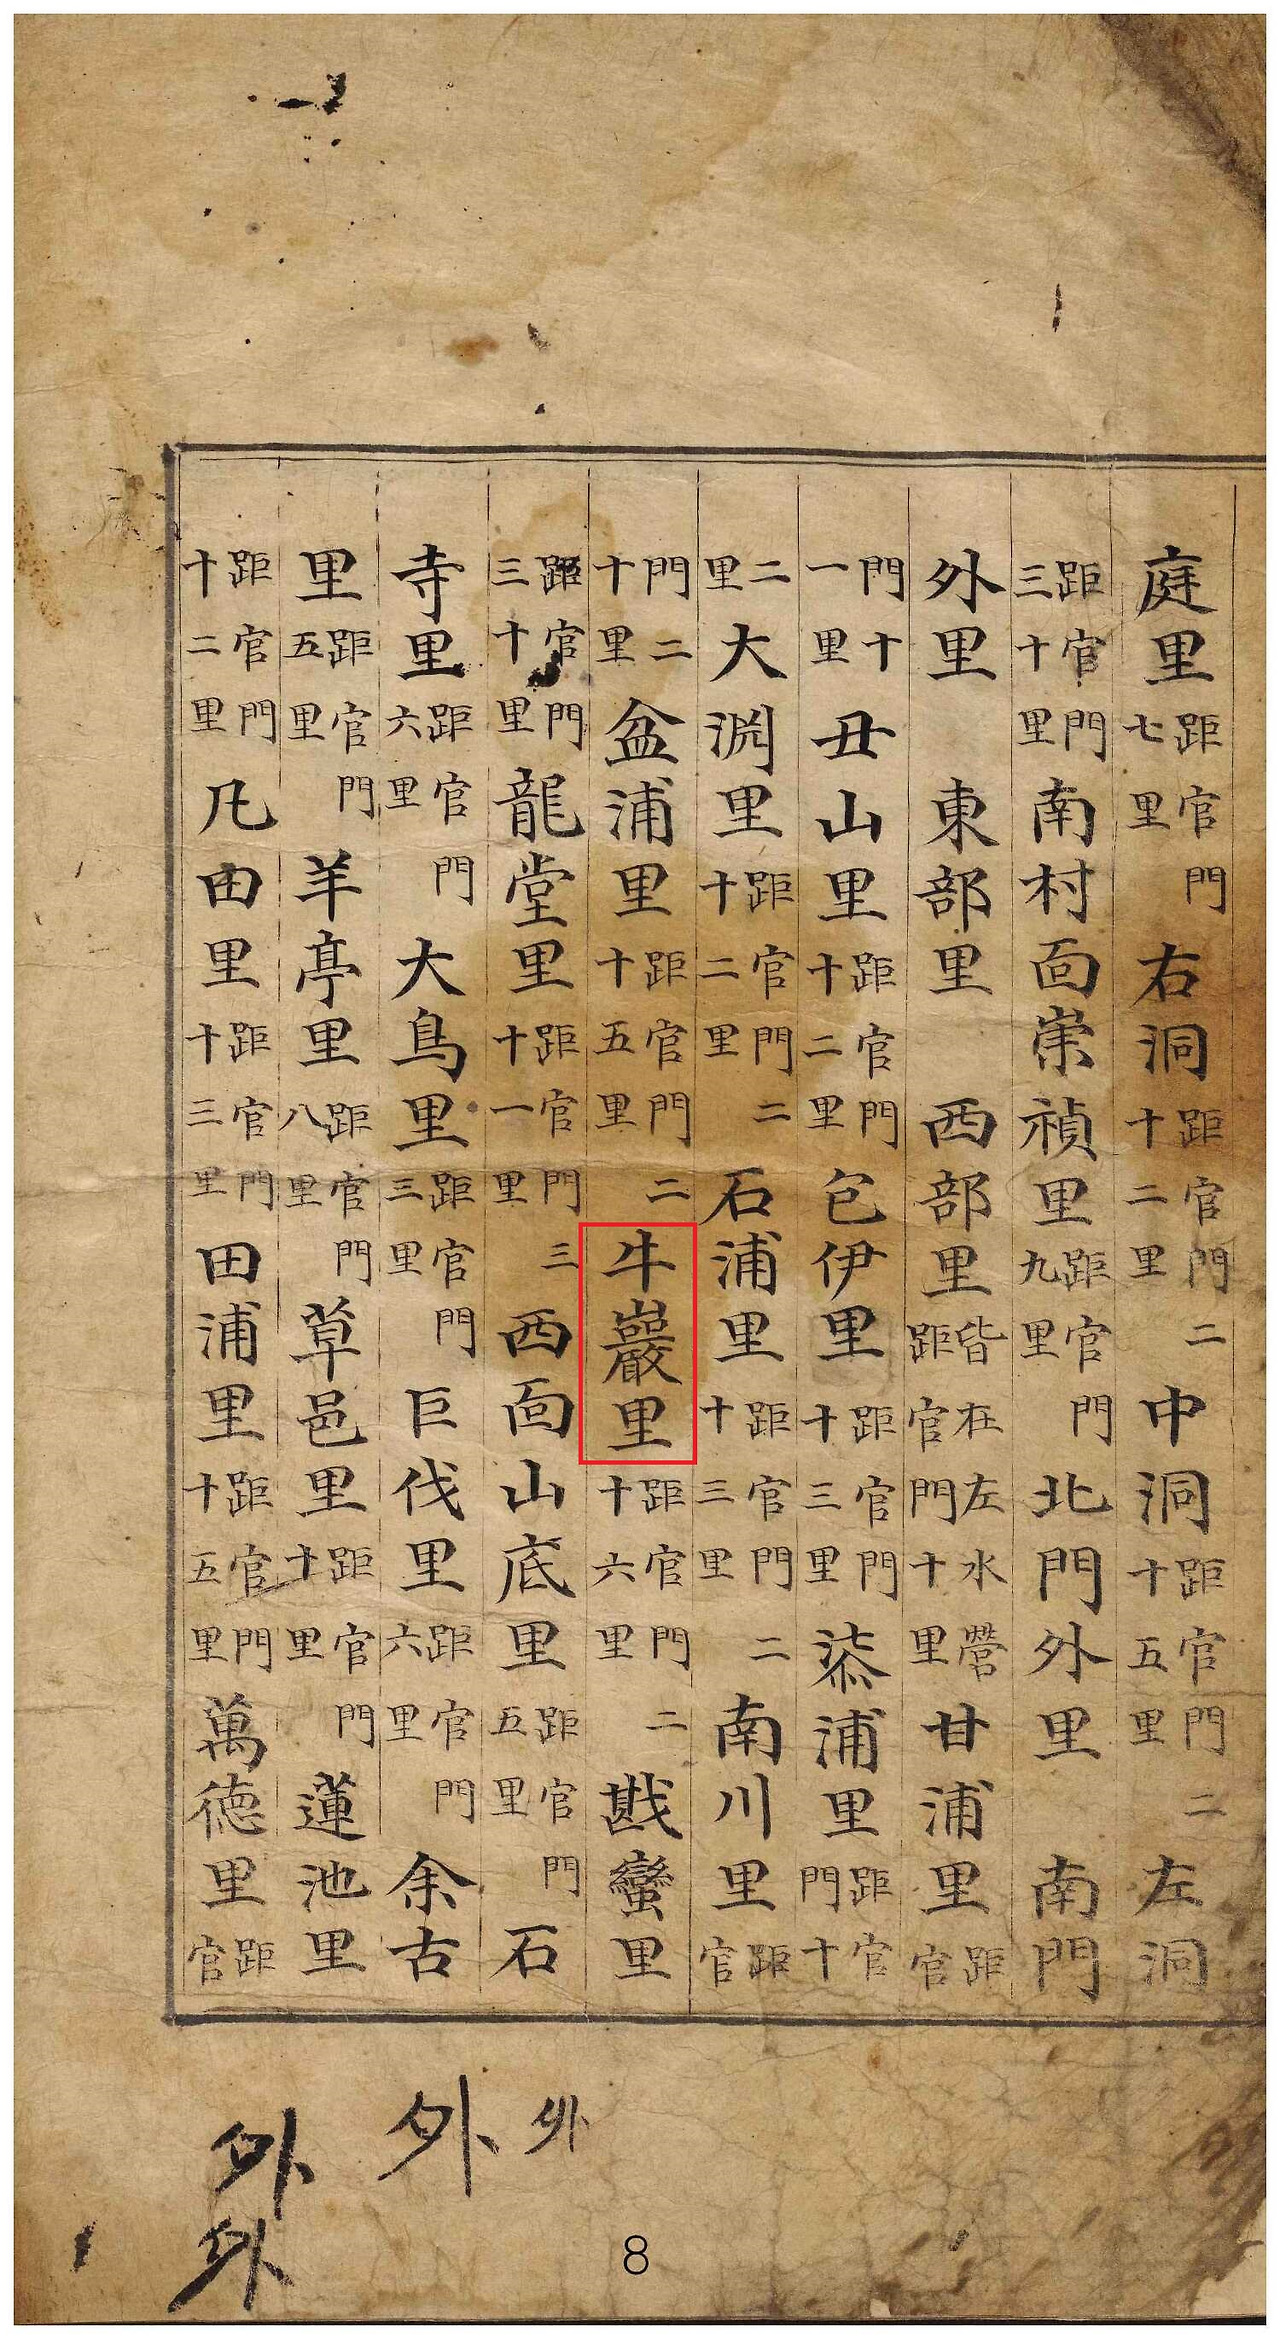 庭里距官門七里右洞距官門二十二里中洞距官門二十五里左洞
距官門三十里南村面崇禎里距官門九里北門外里南門
外里東部里西部里皆在左水營距官門十里甘浦里距官
門十一里丑山里距官門十二里包伊里距官門十三里柒浦里距官門十
二里大渕里距官門二十二里石浦里距官門二十三里南川里距官
門二十里盆浦里距官門二十五里牛巖里距官門二十六里戡蠻里
距官門三十里龍堂里距官門三十一里西面山底里距官門五里石
寺里距官門六里大鳥里距官門三里巨伐里距官門六里余古
里距官門五里羊亭里距官門八里草邑里距官門十里蓮池里
距官門十二里凡由里距官門十三里田浦里距官門十五里萬德里距官
外
外
外
外
8